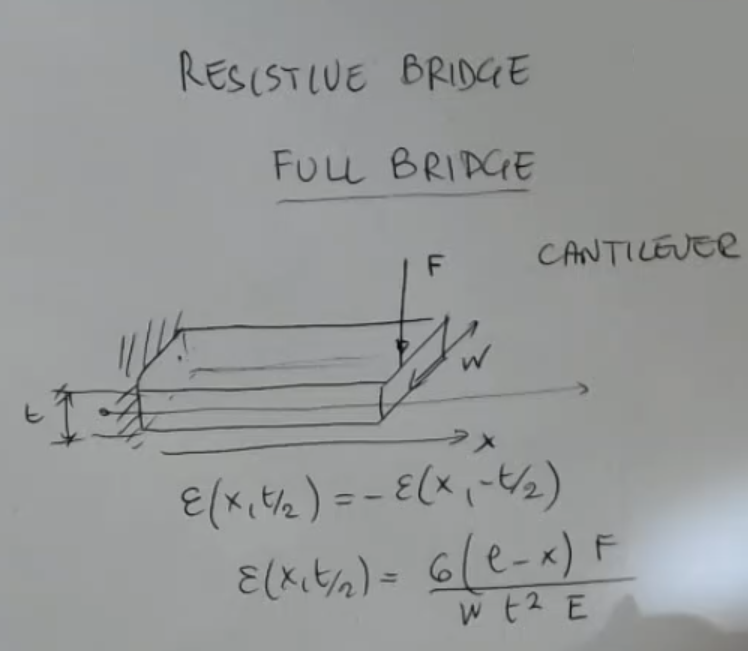 RESISTIVE BRIDGE
FULL BRIDGE
CANTILEVER
F
W
t
x
ε(x, t/2) = - ε(x, -t/2)
ε(x, t/2) = 6(l-x) F / W t² E